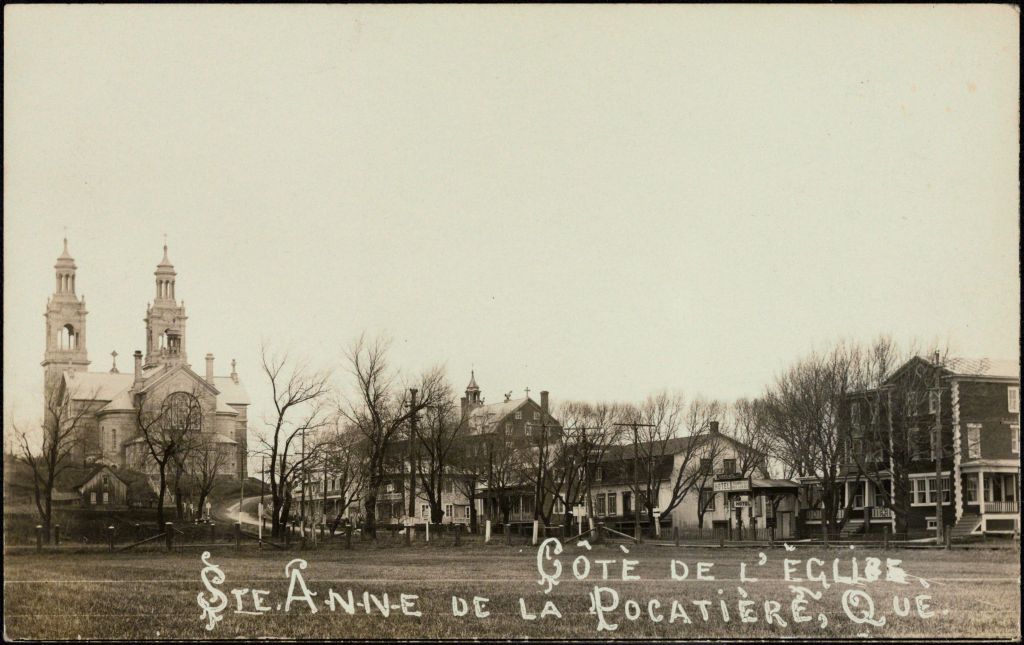 CÔTÈ DE L'ÈGLISE
STE. A-N-N-E DE LA POCATIÈRE, QUÈ.
HOTEL